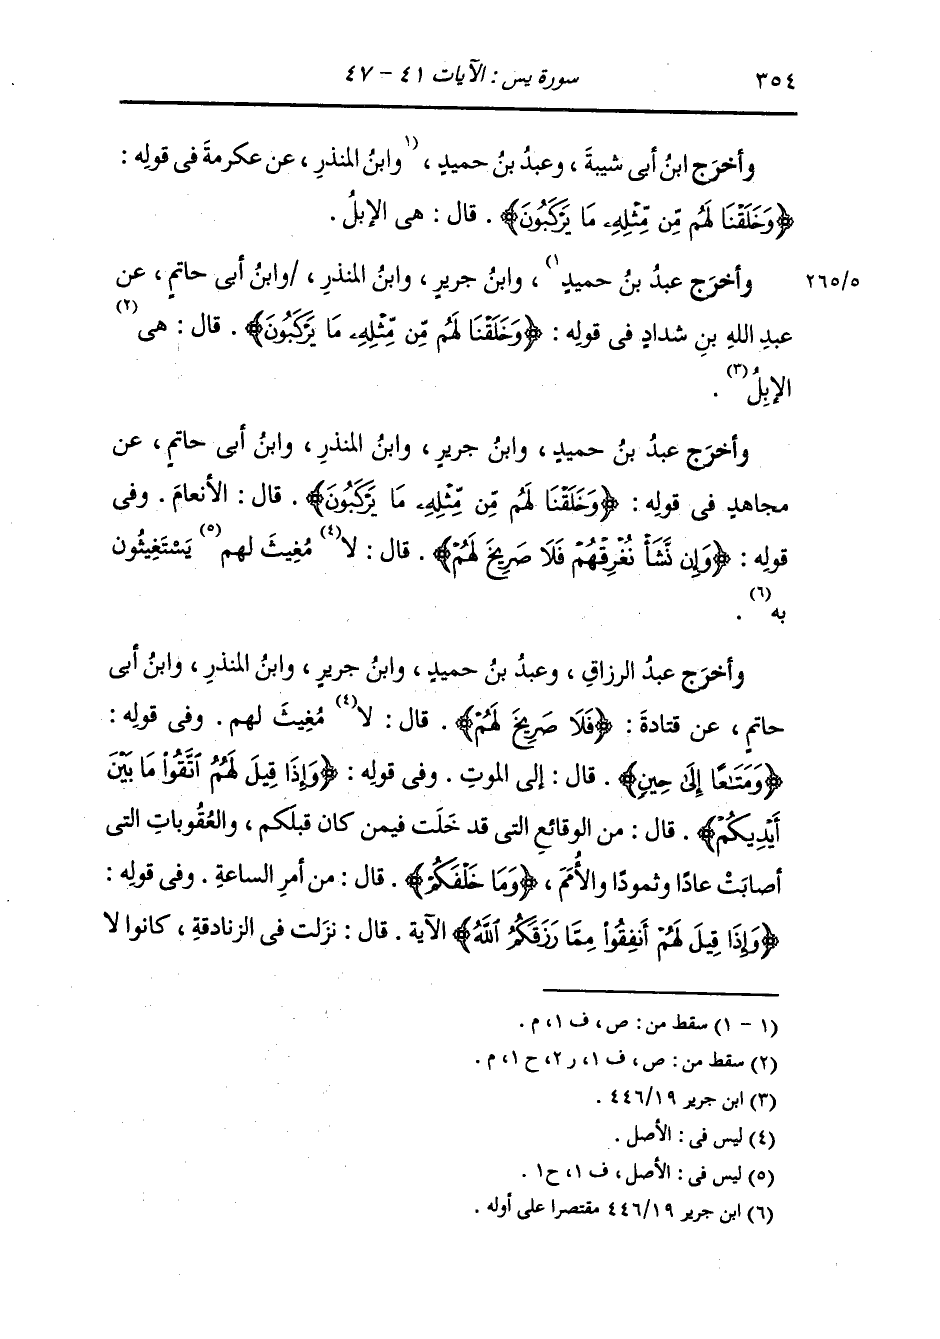 ٣٥٤ سورة يس : الآيات ٤١ - ٤٧
وأخرَج ابنُ أبى شيبةَ ، وعبدُ بنُ حميدٍ ، (١وابنُ المنذرِ ، عن عكرمةَ فى قولِه :
﴿وَخَلَقْنَا لَهُم مِّن مِّثْلِهِۦ مَا يَرْكَبُونَ﴾ . قال : هى الإبلُ .
٢٦٥/٥ وأخرَج عبدُ بنُ حميدٍ١) ، وابنُ جريرٍ ، وابنُ المنذرِ ، /وابنُ أبى حاتمٍ ، عن
عبدِ اللهِ بنِ شدادٍ فى قولِه : ﴿وَخَلَقْنَا لَهُم مِّن مِّثْلِهِۦ مَا يَرْكَبُونَ﴾ . قال : هى(٢)
الإبِلُ(٣) .
وأخرَج عبدُ بنُ حميدٍ ، وابنُ جريرٍ ، وابنُ المنذرِ ، وابنُ أبى حاتمٍ ، عن
مجاهدٍ فى قولِه : ﴿وَخَلَقْنَا لَهُم مِّن مِّثْلِهِۦ مَا يَرْكَبُونَ﴾ . قال : الأنعامَ . وفى
قولِه : ﴿وَإِن نَّشَأْ نُغْرِقْهُمْ فَلَا صَرِيخَ لَهُمْ﴾ . قال : لا(٤) مُغيثَ لهم(٥) يَسْتَغِيثُون
به(٦) .
وأخرَج عبدُ الرزاقِ ، وعبدُ بنُ حميدٍ ، وابنُ جريرٍ ، وابنُ المنذرِ ، وابنُ أبى
حاتمٍ ، عن قتادةَ : ﴿فَلَا صَرِيخَ لَهُمْ﴾ . قال : لا(٤) مُغيثَ لهم . وفى قولِه :
﴿وَمَتَٰعًا إِلَىٰ حِينٍ﴾ . قال : إلى الموتِ . وفى قولِه : ﴿وَإِذَا قِيلَ لَهُمُ ٱتَّقُوا۟ مَا بَيْنَ
أَيْدِيكُمْ﴾ . قال : من الوقائعِ التى قد خَلَت فيمن كان قبلَكم ، والعُقُوباتِ التى
أصابَتْ عادًا وثمودًا والأُمَمَ ، ﴿وَمَا خَلْفَكُمْ﴾ . قال : من أمرِ الساعةِ . وفى قولِه :
﴿وَإِذَا قِيلَ لَهُمْ أَنفِقُوا۟ مِمَّا رَزَقَكُمُ ٱللَّهُ﴾ الآية . قال : نزَلت فى الزنادقةِ ، كانوا لا
(١ - ١) سقط من : ص ، ف ١، م .
(٢) سقط من : ص ، ف ١، ر ٢، ح ١، م .
(٣) ابن جرير ٤٤٦/١٩ .
(٤) ليس فى : الأصل .
(٥) ليس فى : الأصل ، ف ١، ح١ .
(٦) ابن جرير ٤٤٦/١٩ مقتصرا على أوله .